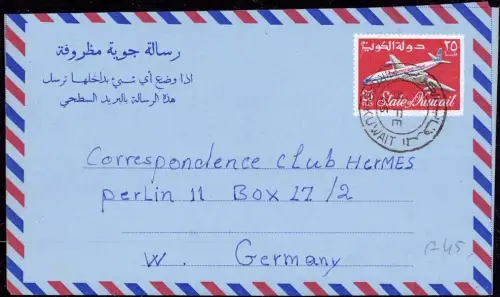 رسالة جوية مظروفة
اذا وضع أي شيئ بداخلها ترسل
هذه الرسالة بالبريد السطحي
دولة الكويت
٢٥
State of Kuwait
KUWAIT
Correspondence Club HerMES
perlin 11 Box 17/2
W. Germany